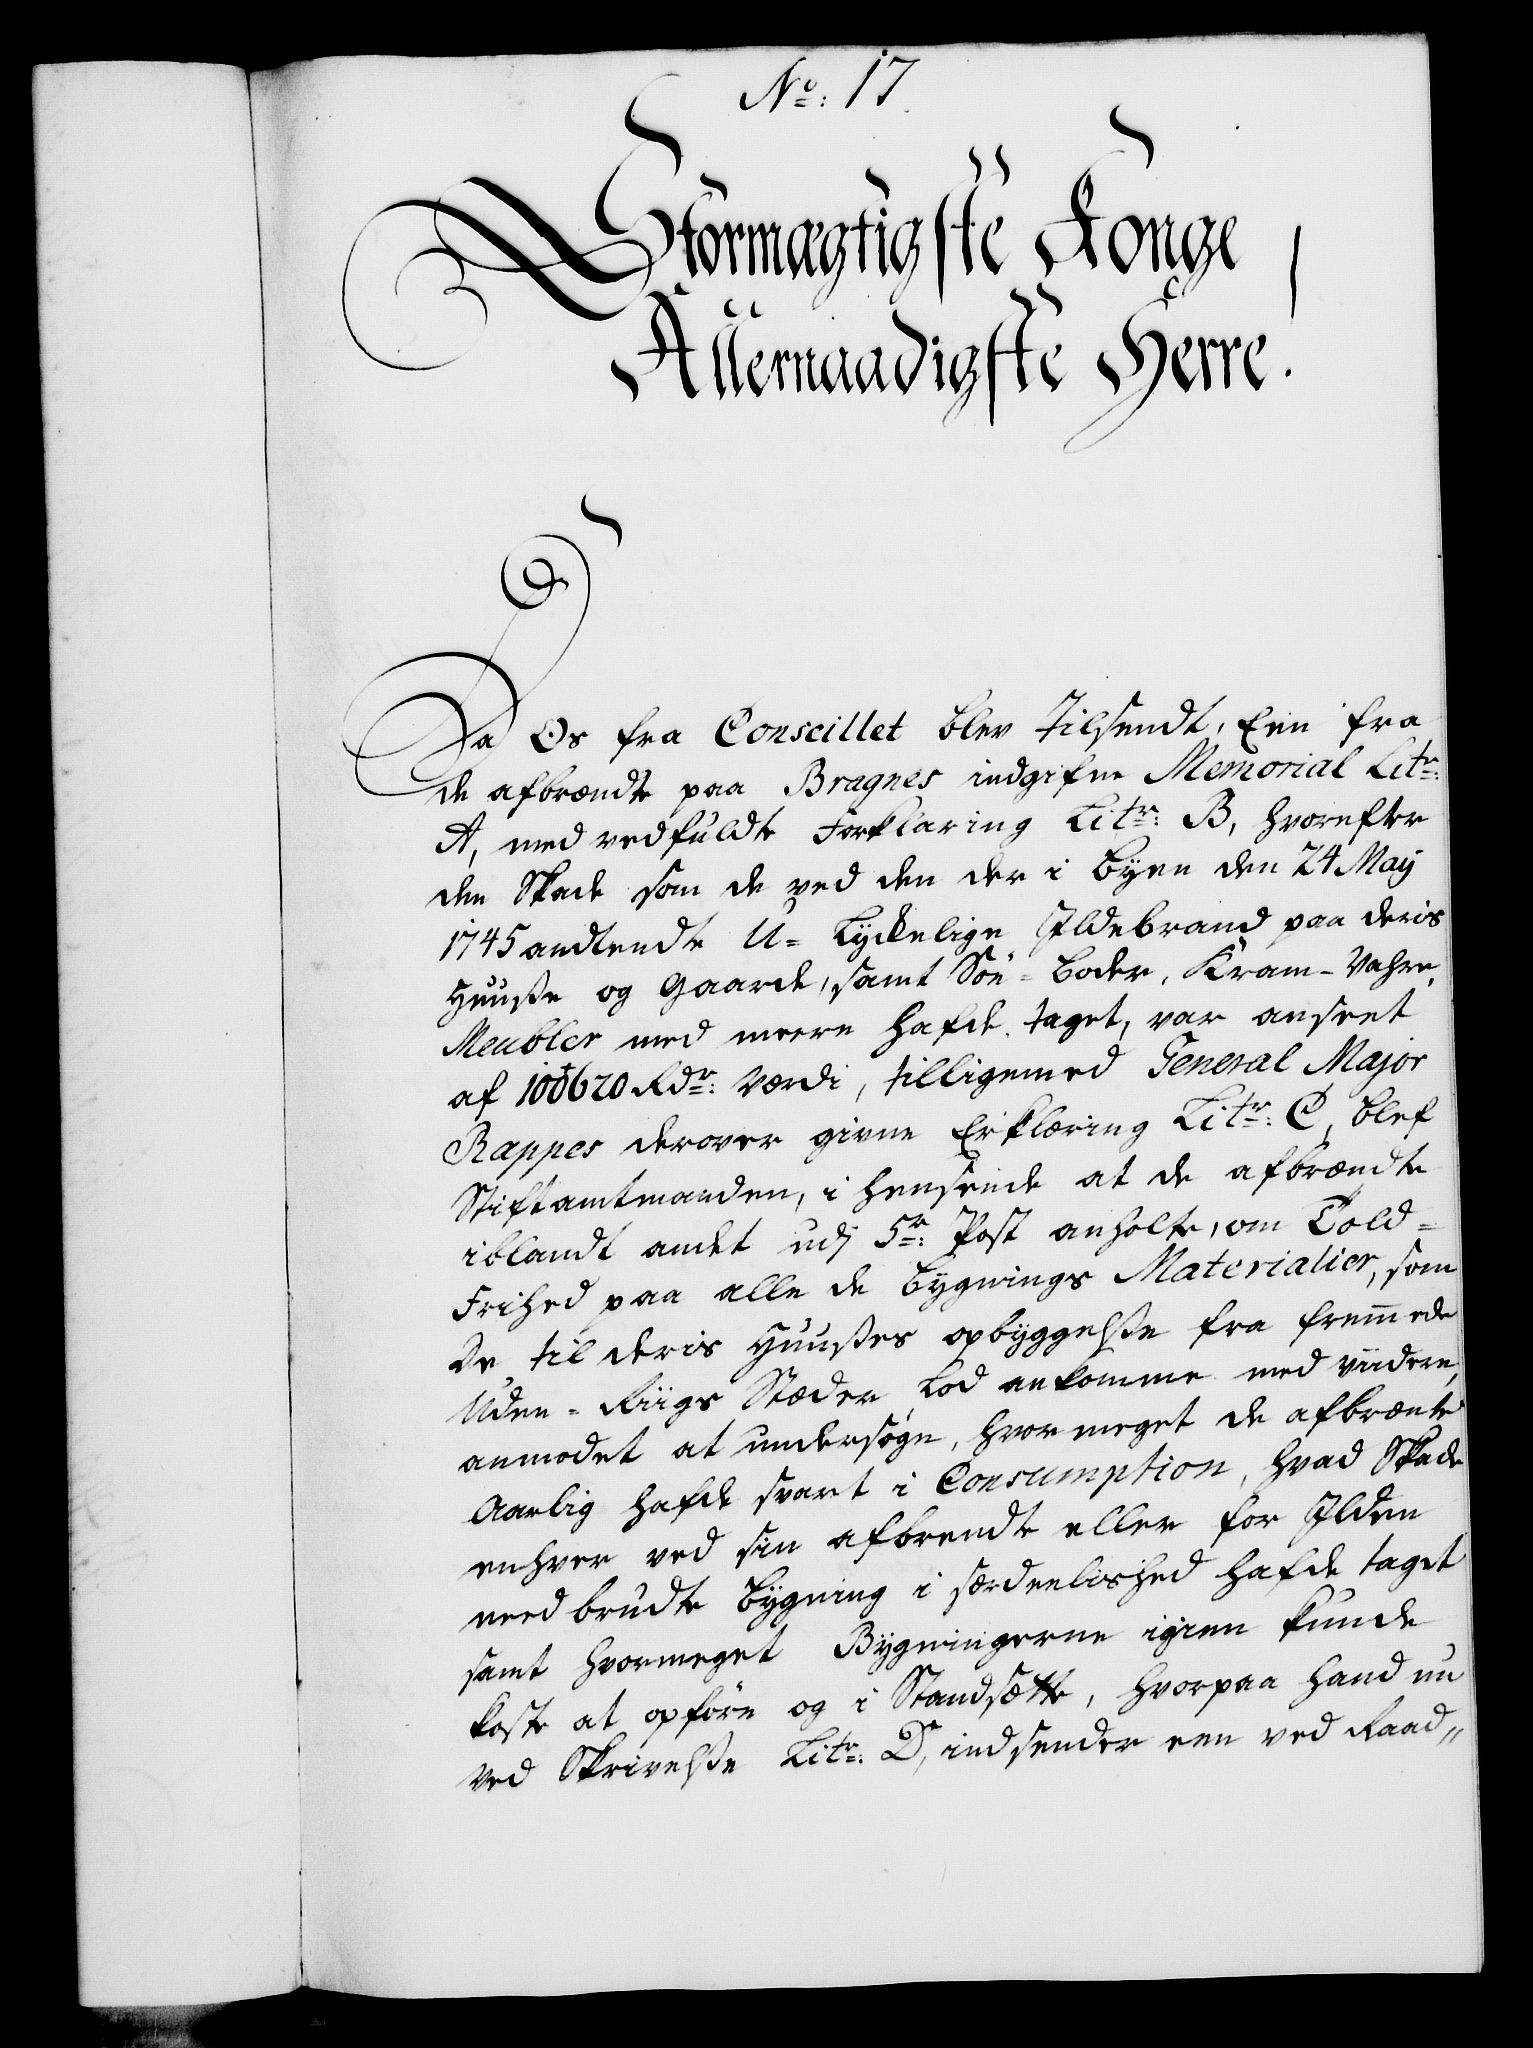 No: 17.
Stormægtigste Konge
Allernaadigste Herre!
Da Os fra Conseillet blev tilsendt, Een fra
de afbrændte paa Bragnes indgifne Memorial Litr:
A, med vedfuldte Forklaring Litr: B, hvorefter
den Skade som de ved den der i Byen den 24 May
1745 andtendte U-Lyckelige Ildebrand paa deris
Huuße og Gaarde, samt Söe-Boder, Kram-Vahre,
Meubler med meere hafde taget, var anseet
af 100620 Rdr: Værdi, tilligemed General Major
Rappes derover givne Erklæring Litr: C, blef
Stiftamtmanden, i henseende at de afbrændte
iblandt andet udj 5te: Post anholte, om Told-
Frihed paa alle de Bygnings Materialier, som
De til deris Huußes opbyggelße fra fremmede
Uden-Riigs Stæder lod ankomme med viidere,
anmodet at undersøge, hvormeget de afbrændte
Aarlig hafde svart i Consumption, hvad Skade
enhver ved sin afbrendte eller for Ilden
need brudte Bygning i særdeelished hafde taget
samt hvormeget Bygningerne igien kunde
koste at opföre og i Standsætte, hvorpaa hand nu
ved Skrivelße Litr: D, indsender een ved Raad„